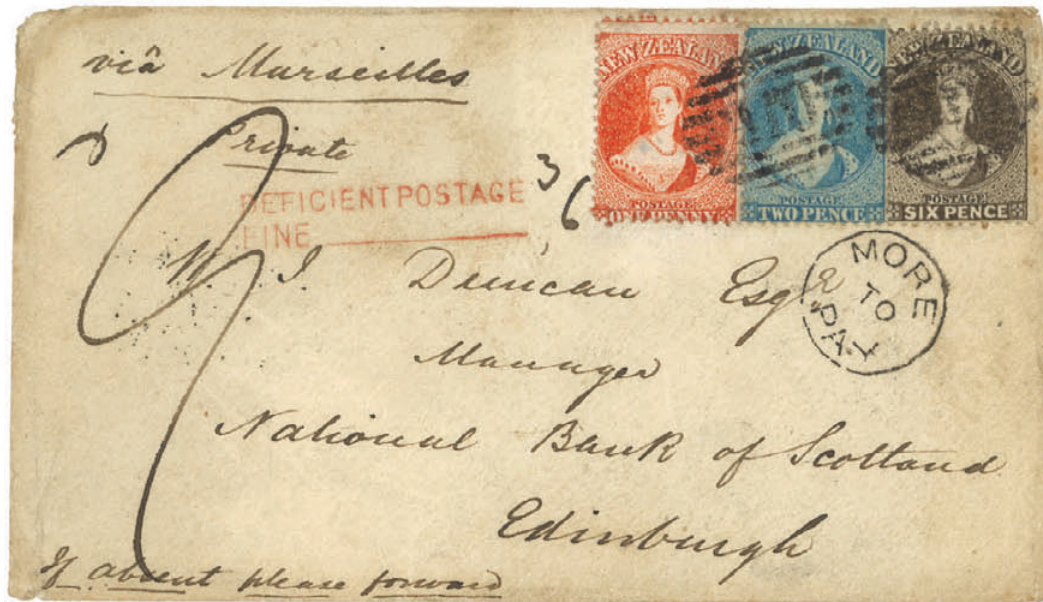 viâ Marseilles
Private
DEFICIENT POSTAGE
FINE
3
6
NEW ZEALAND
POSTAGE
ONE PENNY
NEW ZEALAND
POSTAGE
TWO PENCE
NEW ZEALAND
POSTAGE
SIX PENCE
MORE
TO
PAY
W. J. Duncan Esqre
Manager
National Bank of Scotland
Edinburgh
If absent please forward